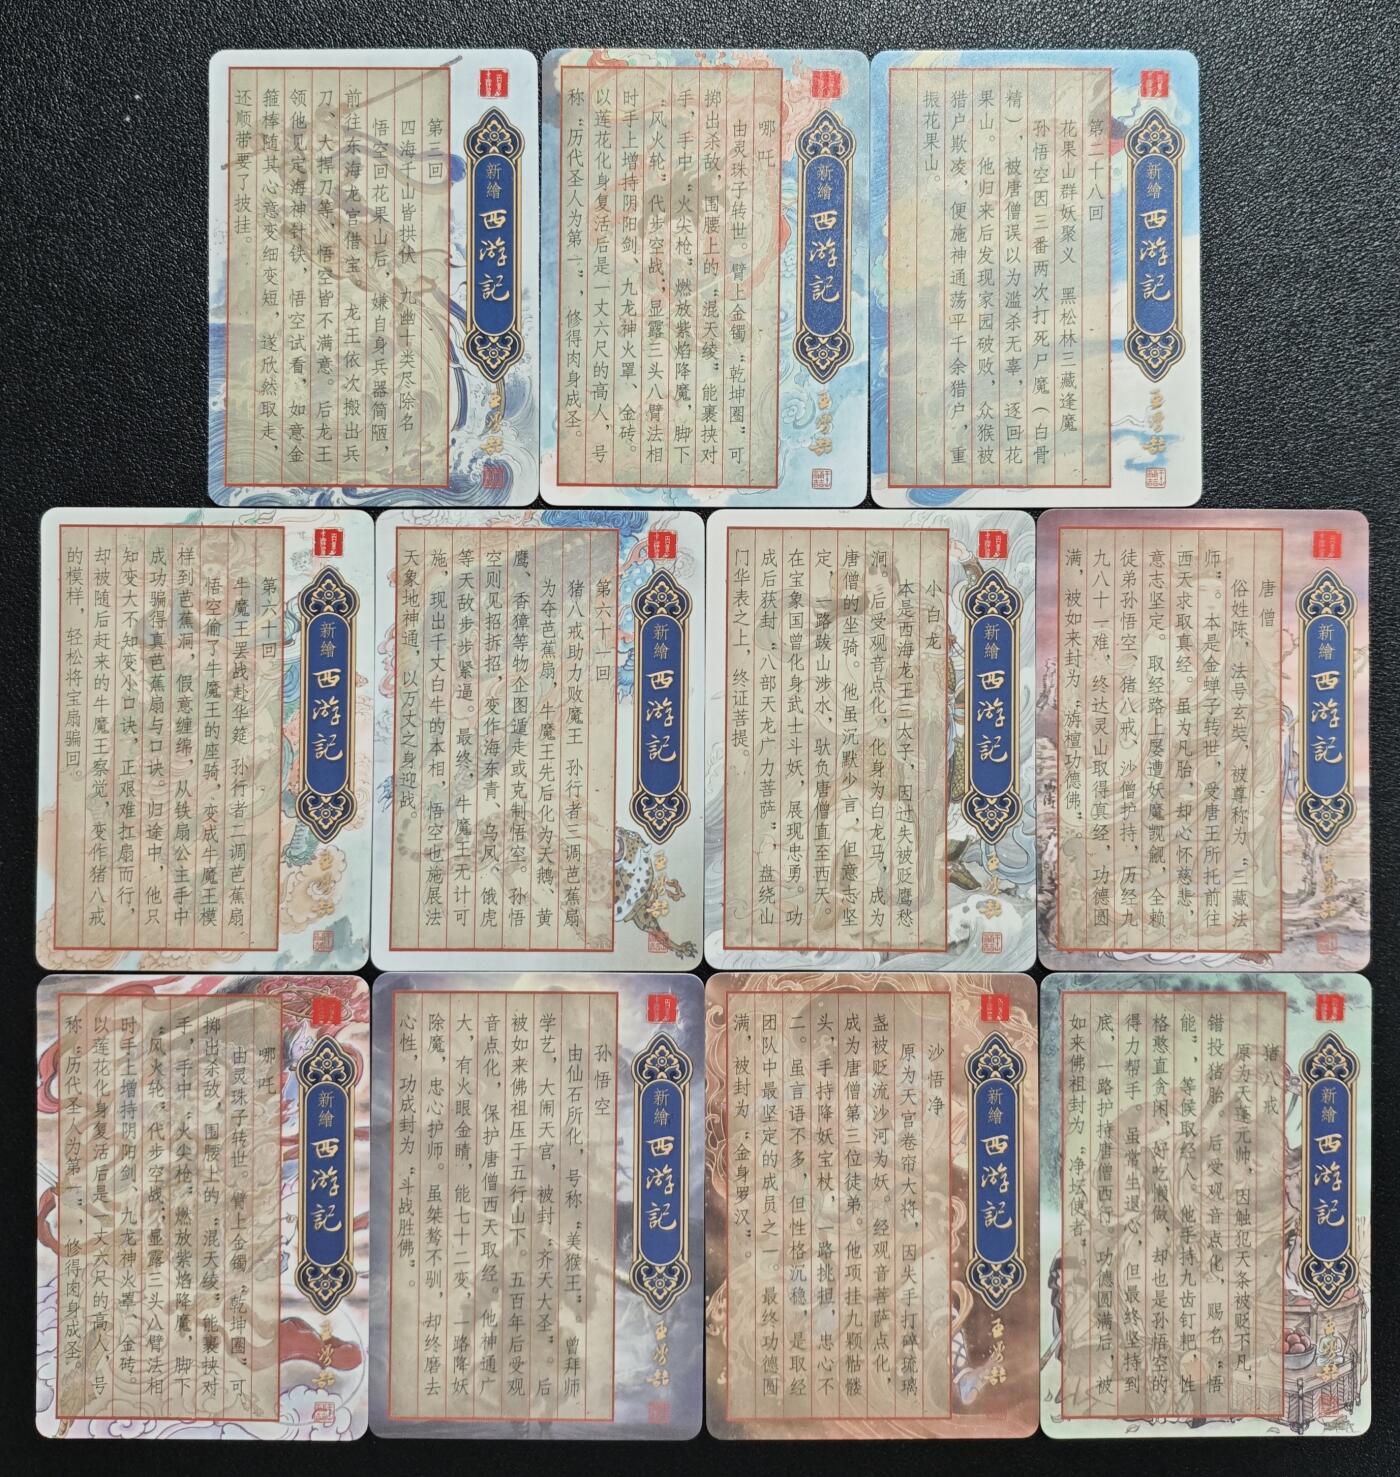 新繪
西游記
第三回
四海千山皆拱伏　九幽十类尽除名
悟空回花果山后，嫌自身兵器简陋，
前往东海龙宫借宝。龙王依次搬出兵
刀、大捍刀等，悟空皆不满意。后龙王
领他见定海神针铁，悟空试看，如意金
箍棒随其心意变细变短，遂欣然取走，
还顺带要了披挂。
新繪
西游記
哪吒
由灵珠子转世。臂上金镯“乾坤圈”可
掷出杀敌，围腰上的“混天绫”能裹挟对
手，手中“火尖枪”燃放紫焰降魔，脚下
“风火轮”代步空战；显露三头八臂法相
时手上增持阴阳剑、九龙神火罩、金砖。
以莲花化身复活后是一丈六尺的高人，号
称“历代圣人为第一”，修得肉身成圣。
新繪
西游記
第二十八回
花果山群妖聚义　黑松林三藏逢魔
孙悟空因三番两次打死尸魔（白骨
精），被唐僧误以为滥杀无辜，逐回花
果山。他归来后发现家园破败，众猴被
猎户欺凌，便施神通荡平千余猎户，重
振花果山。
新繪
西游記
第六十回
牛魔王罢战赴华筵　孙行者二调芭蕉扇
悟空偷了牛魔王的座骑，变成牛魔王模
样到芭蕉洞，假意缠绵，从铁扇公主手中
成功骗得真芭蕉扇与口诀。归途中，他只
知变大不知变小口诀，正艰难扛扇而行，
却被随后赶来的牛魔王察觉，变作猪八戒
的模样，轻松将宝扇骗回。
新繪
西游記
第六十一回
猪八戒助力败魔王　孙行者三调芭蕉扇
为夺芭蕉扇，牛魔王先后化为天鹅、黄
鹰、香獐等物企图遁走或克制悟空。孙悟
空则见招拆招，变作海东青、乌凤、饿虎
等天敌步步紧逼。最终，牛魔王无计可
施，现出千丈白牛的本相，悟空也施展法
天象地神通，以万丈之身迎战。
新繪
西游記
小白龙
本是西海龙王三太子，因过失被贬鹰愁
涧，后受观音点化，化身为白龙马，成为
唐僧的坐骑。他虽沉默少言，但意志坚
定，一路跋山涉水，驮负唐僧直至西天。
在宝象国曾化身武士斗妖，展现忠勇。功
成后获封“八部天龙广力菩萨”，盘绕山
门华表之上，终证菩提。
新繪
西游記
唐僧
俗姓陈，法号玄奘，被尊称为“三藏法
师”。本是金蝉子转世，受唐王所托前往
西天求取真经。虽为凡胎，却心怀慈悲，
意志坚定。取经路上屡遭妖魔觊觎，全赖
徒弟孙悟空、猪八戒、沙僧护持，历经九
九八十一难，终达灵山取得真经，功德圆
满，被如来封为“旃檀功德佛”。
新繪
西游記
哪吒
由灵珠子转世。臂上金镯“乾坤圈”可
掷出杀敌，围腰上的“混天绫”能裹挟对
手，手中“火尖枪”燃放紫焰降魔，脚下
“风火轮”代步空战；显露三头八臂法相
时手上增持阴阳剑、九龙神火罩、金砖。
以莲花化身复活后是一丈六尺的高人，号
称“历代圣人为第一”，修得肉身成圣。
新繪
西游記
孙悟空
由仙石所化，号称“美猴王”。曾拜师
学艺，大闹天宫，被封“齐天大圣”。后
被如来佛祖压于五行山下。五百年后受观
音点化，保护唐僧西天取经。他神通广
大，有火眼金睛，能七十二变，一路降妖
除魔，忠心护师。虽桀骜不驯，却终磨去
心性，功成封为“斗战胜佛”。
新繪
西游記
沙悟净
原为天宫卷帘大将，因失手打碎琉璃
盏被贬流沙河为妖。经观音菩萨点化，
成为唐僧第三位徒弟。他项挂九颗骷髅
头，手持降妖宝杖，一路挑担，忠心不
二。虽言语不多，但性格沉稳，是取经
团队中最坚定的成员之一。最终功德圆
满，被封为“金身罗汉”。
新繪
西游記
猪八戒
原为天蓬元帅，因触犯天条被贬下凡，
错投猪胎。后受观音点化，赐名“悟
能”，等候取经人。他手持九齿钉耙，性
格憨直贪闲，好吃懒做，却也是孙悟空的
得力帮手。虽常生退心，但最终坚持到
底，一路护持唐僧西行。功德圆满后，被
如来佛祖封为“净坛使者”。